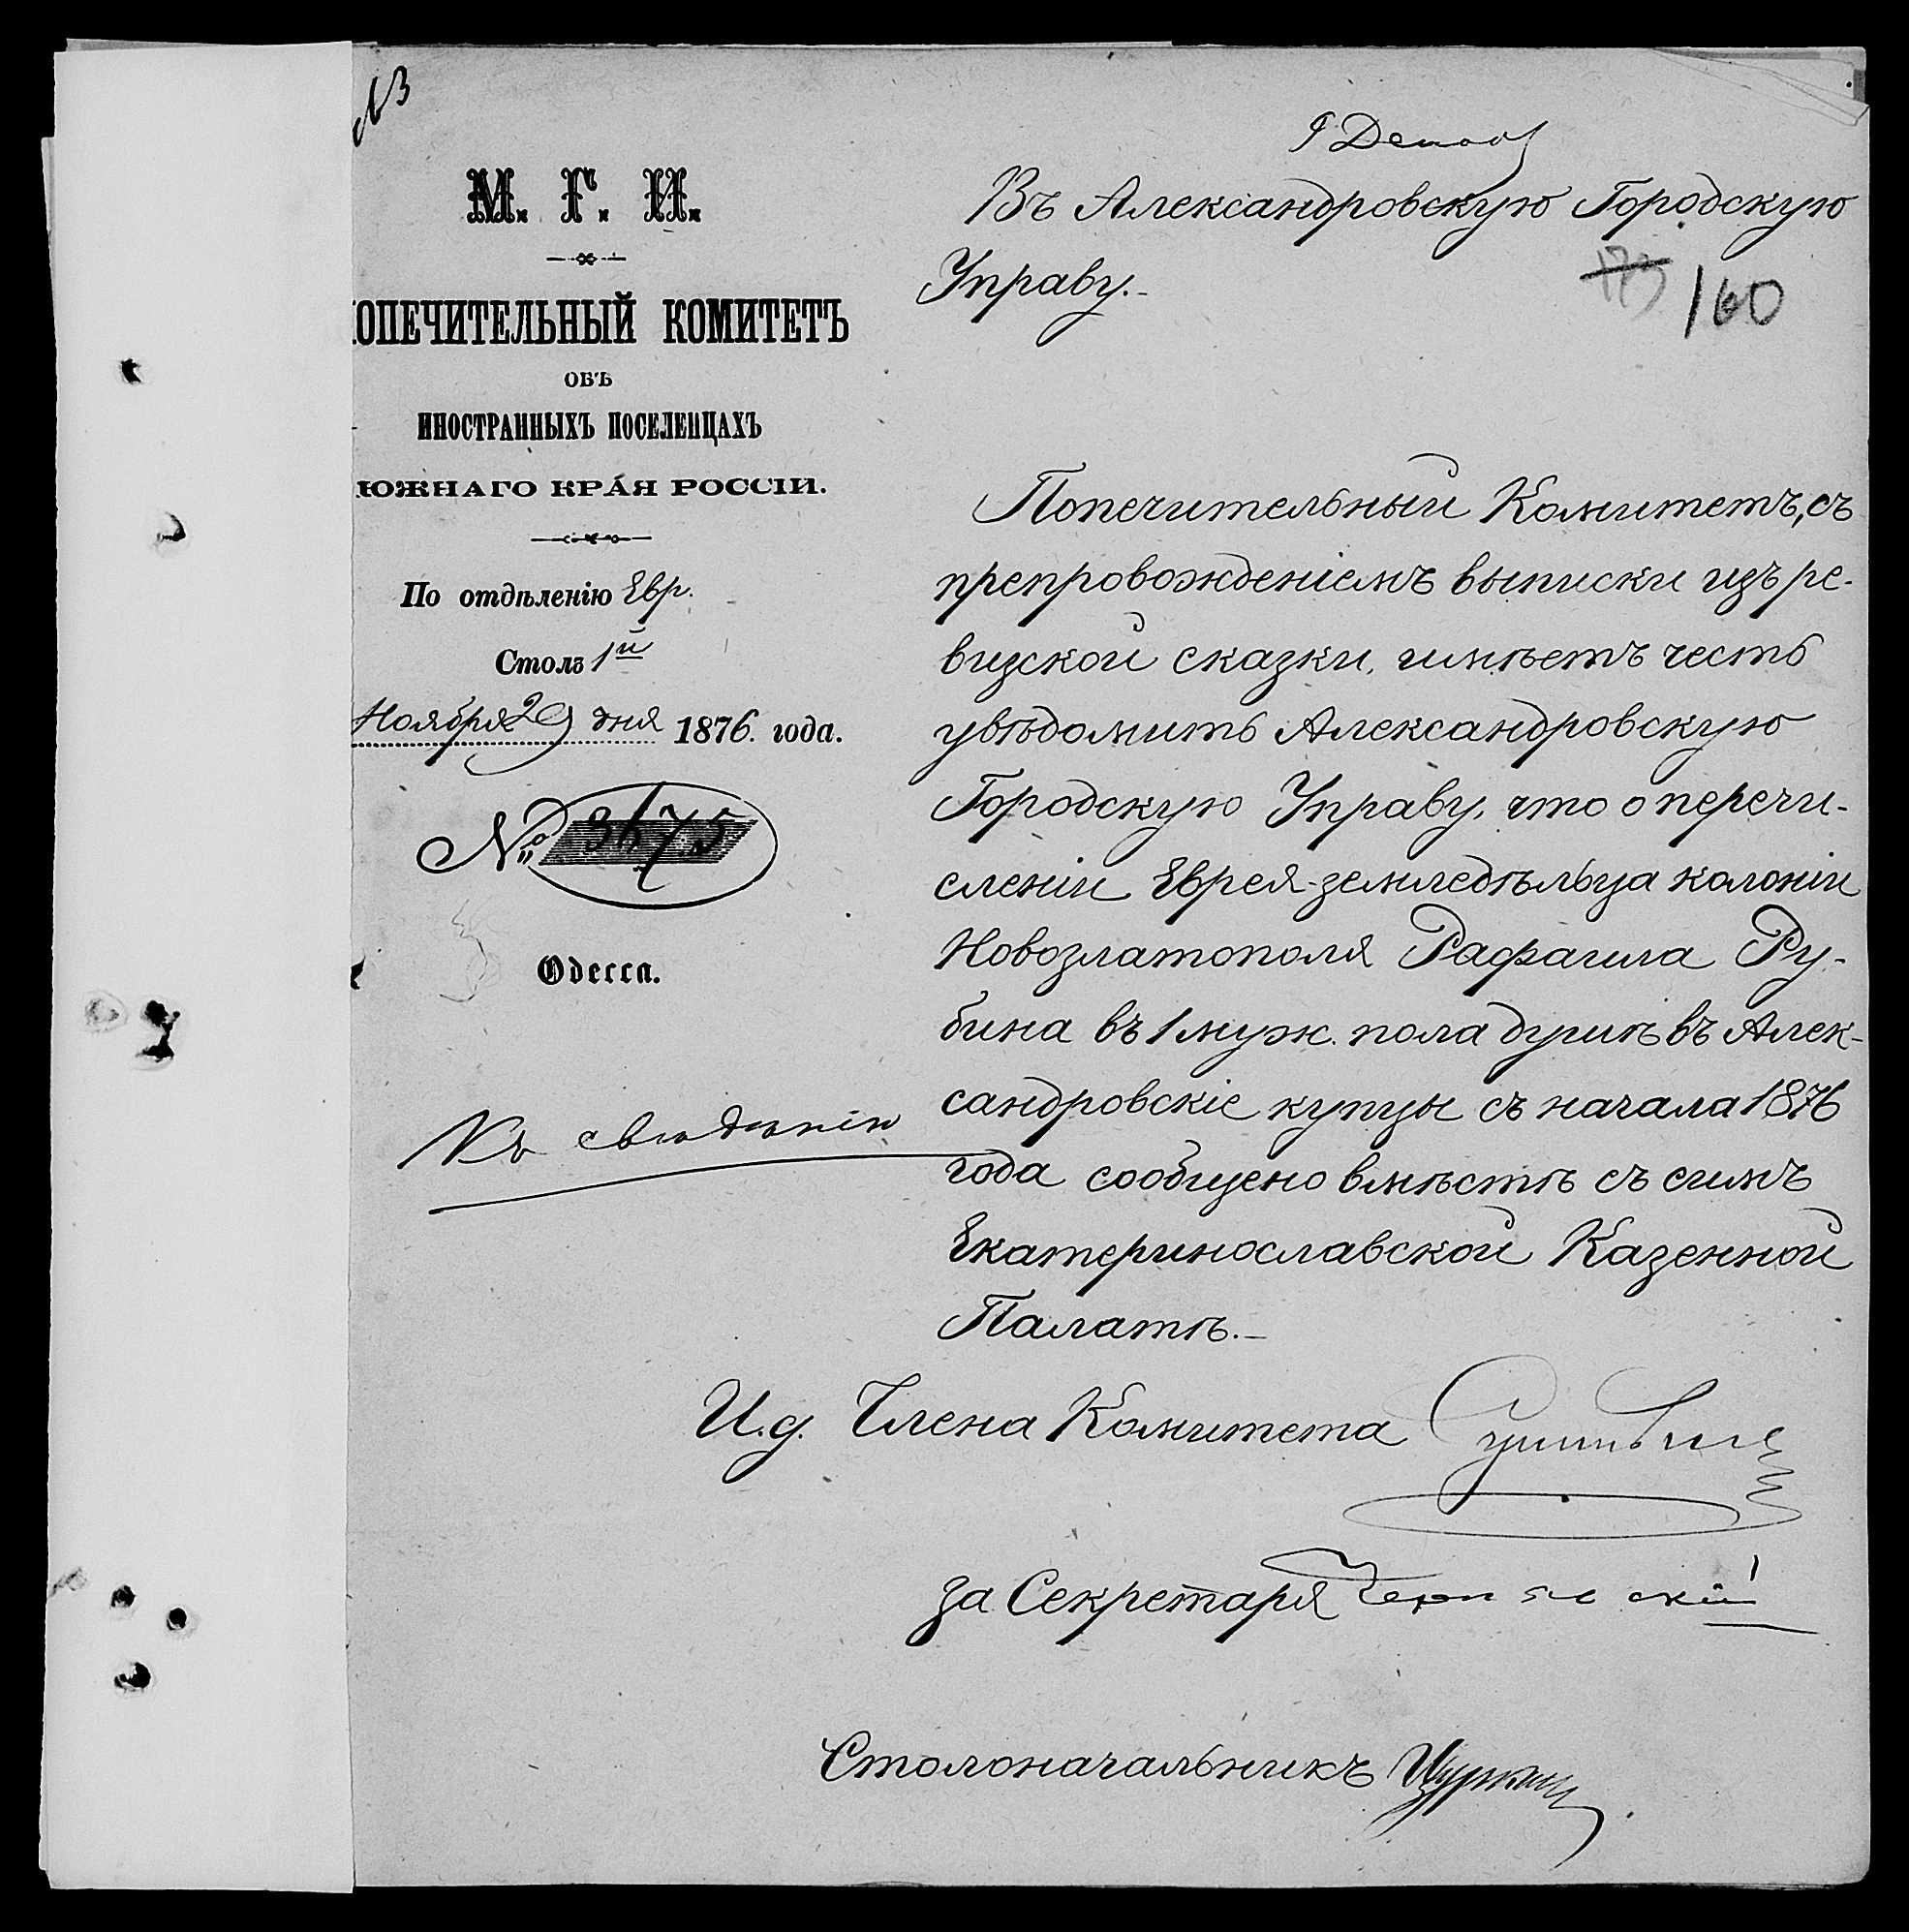 М. Г. И.
ОПЕЧИТЕЛЬНЫЙ КОМИТЕТЪ
ОБЪ
ИНОСТРАННЫХЪ ПОСЕЛЕНЦАХЪ
ЮЖНАГО КРАЯ РОССІИ.
По отдѣленію Евр.
Столъ 1й
Ноября 29 дня 1876. года.
№ 3675
Одесса.
Къ свѣдѣнію
Въ Александровскую Городскую
Управу.-
173 160
Попечительный Комитетъ, съ
препровожденіемъ выписки изъ ре-
визской сказки, имѣетъ честь
увѣдомить Александровскую
Городскую Управу, что о перечи-
сленіи Еврея-земледѣльца колоніи
Новозлатополя Рафаила Ру-
бина въ 1 муж. пола душѣ въ Алек-
сандровскіе купцы съ начала 1876
года сообщено вмѣстѣ съ симъ
Екатеринославской Казенной
Палатѣ.-
И.д. Члена Комитета
за Секретаря
Столоначальникъ